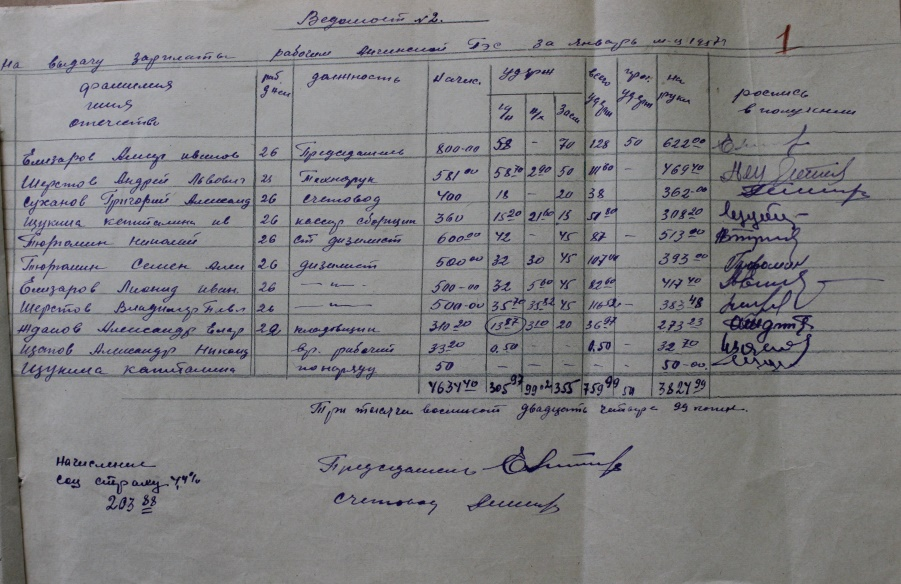 Ведомост №2.
1
На выдачу зарплаты рабочим Ачинской Гэс за январь м-ц 1957г
фамилия имя отчество раб дней должность начис. удерж всего удерж проч удерж на руки роспись в получении
п/н н/х Заем
Елизаров Алексд иванов 26 Председатель 800-00 58 - 70 128 50 622 00
Шерстов Андрей Львович 21 Технорук 581 00 58 70 2 90 50 111 60 - 469 40
Суханов Григорий Александ 26 счетовод 400 18 20 38 362-00
Щукина капиталина ив 26 кассир сборщик 360 15 20 21 60 15 51 80 - 308 20
Тюрюмин Николай 26 ст дизелист 600 00 42 - 45 87 - 513 00
Тюрюмин Семен Алек 26 дизелист 500 00 32 30 45 107 00 393 00
Елизаров Лионид иван. 26 —„— 500-00 32 5 60 45 82 60 417 40
Шерстов Владимир Павл 26 —„— 500-00 35 70 35 82 45 116 52 - 383 48
Жданов Александр 22 кладовщик 310 20 13 87 3 10 20 36 97 273 23
Александр Никол вр. рабочий 33 20 0,50 — — 0.50 - 32 70
Щукина капиталина по наряду 50 — — — — — 50-00.
4634 40 305 97 99 02 355 759 99 50 3824 99
Три тысячи восимсот двадцать четыре 99 копик.
Начисление
соц страху 4,4%
203 88
Председатель
счетовод